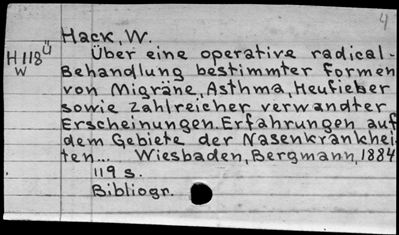 4
Hack, W.
H 118 ü
W
Über eine operative radical-
Behandlung bestimmter Formen
von Migräne, Asthma, Heufieber
sowie zahlreicher verwandter
Erscheinungen. Erfahrungen auf
dem Gebiete der Nasenkrankhei-
ten... Wiesbaden, Bergmann, 1884
119 s.
Bibliogr.